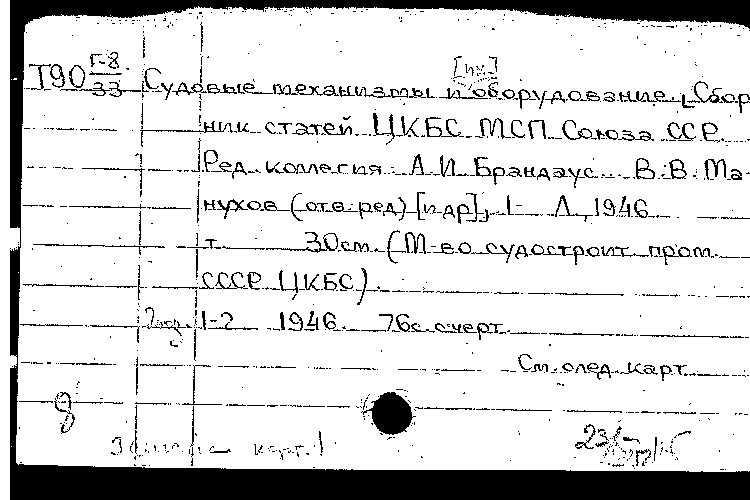 Т90 Г-8/33 Судовые механизмы и [их] оборудование. Сбор
ник статей ЦКБС МСП Союза ССР.
Ред. коллегия: А.И. Брандаус. В.В. Ма-
нухов (отв. ред) [и др], 1- Л., 1946
т. 30см. (М-во судостроит пром.
СССР ЦКБС).
1-2 1946. 76с. с черт.
См. след. карт.
8
карт. 1